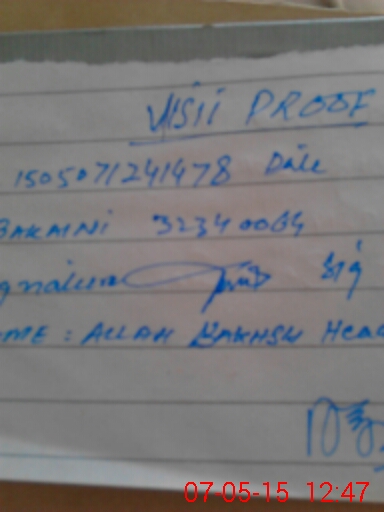 VISIT PROOF
1505071241478 Date
BAKAINI 32340064
gnature Sig
ME : ALLAH BAKHSH Head
07-05-15 12:47